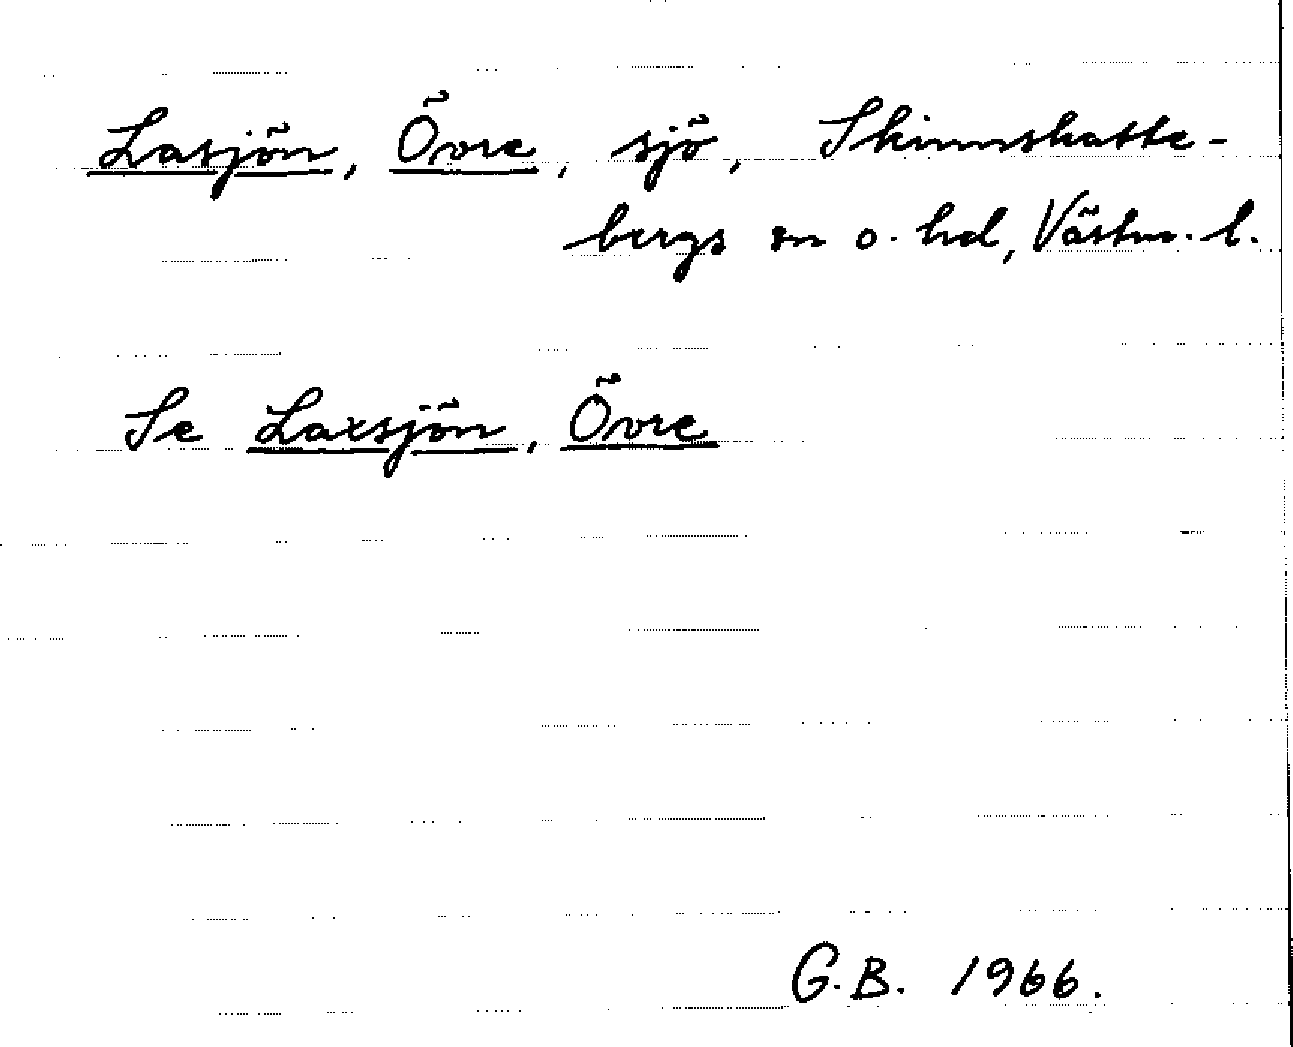 Lasjön, Övre, sjö, Skinnskatte-
bergs sn o. hd, Västm. l.
Se Laxsjön, Övre
G.B. 1966.